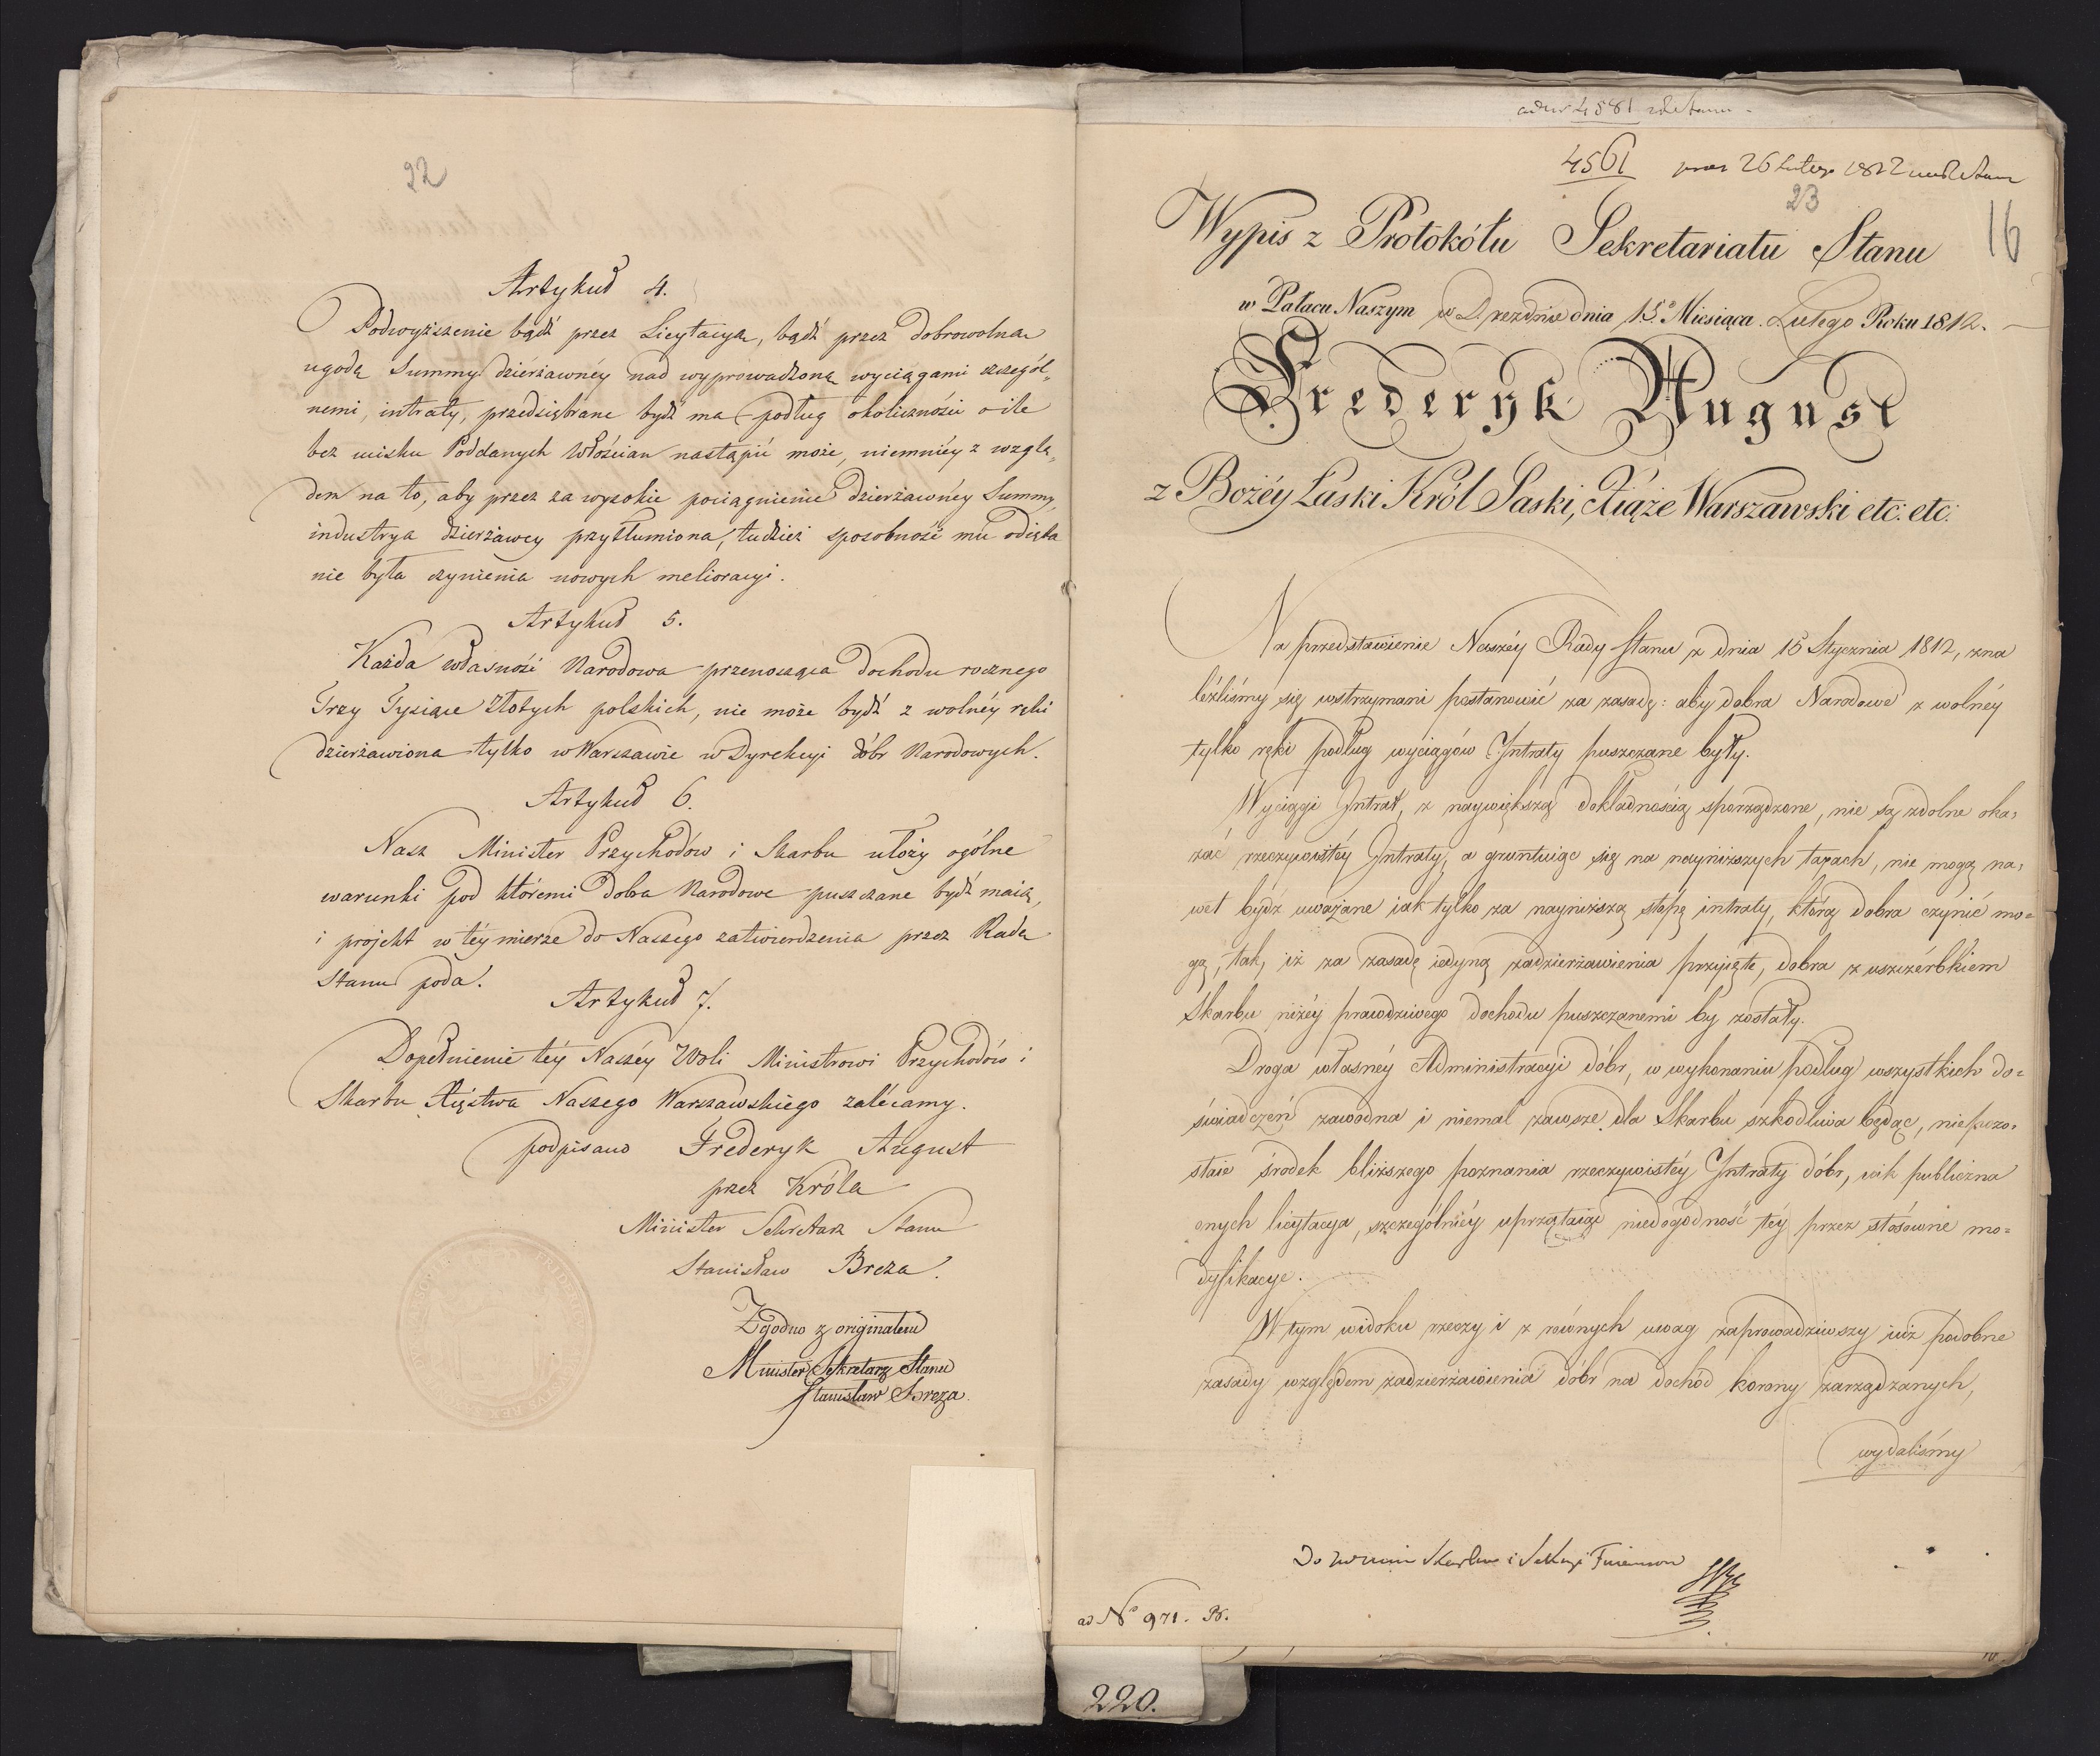 22
Artykuł 4.
Podwyższenie bądź przez Licytacyą, bądź przez dobrowolną
ugodę Summy dzierżawnéy nad wyprowadzoną wyciągami szczegól„
nemi, intratę, przedsiębrane bydź ma podług okoliczności o ile
bez ucisku Poddanych Włościan nastąpić może, niemniéy z wzglę„
dem na to, aby przez za wysokie pociągnienie dzierżawnéy Summy,
industrya dzierżawcy przytłumiona, tudzież sposobność mu odięta
nie była czynienia nowych melioracyi.
Artykuł 5.
Każda własność Narodowa przenosząca dochodu rocznego
Trzy Tysiące Złotych polskich, nie może bydź z wolnéy ręki
dzierżawiona tylko w Warszawie w Dyrekcyi dóbr Narodowych.
Artykuł 6.
Nasz Minister Przychodów i Skarbu ułoży ogólne
warunki pod któremi Dobra Narodowe puszczane bydź maią,
i projekt w téy mierze do Naszego zatwierdzenia przez Radę
Stanu poda.
Artykuł 7.
Dopełnienie téy Naszéy Woli Ministrowi Przychodów i
Skarbu Xięstwa Naszego Warszawskiego zalécamy.
podpisano Frederyk August
przez Króla
Minister Sekretarz Stanu
Stanisław Breza.
Zgodno z originałem
Minister Sekretarz Stanu
Stanisław Breza.
4581
4561 26 Lutego 1812
23
16
Wypis z Protokółu Sekretariatu Stanu
w Pałacu Naszym w Dreznie dnia 15º Miesiąca Lutego Roku 1812.
Frederyk August
z Bożéy Łaski Król Saski, Xiąże Warszawski etc: etc:
Na przedstawienie Naszéy Rady Stanu z dnia 15 Stycznia 1812, zna
leźliśmy się wstrzymani postanowić za zasadę: aby dobra Narodowe z wolnéy
tylko ręki podług wyciągów Intraty puszczane były.
Wyciągi Intrat, z naywiększą dokładnością sporządzone, nie są zdolne oka=
zać rzeczywistéy Intraty, a gruntuiąc się na nayniższych taxach, nie mogą na=
wet bydź uważane iak tylko za nayniższą stopę intraty, którą dobra czynić mo=
gą, tak, iż za zasadę iedyną zadzierżawienia przyięte, dobra z uszczérbkiem
Skarbu niżéy prawdziwego dochodu puszczanemi by zostały.
Droga własnéy Administracyi dóbr, w wykonaniu podług wszystkich do=
świadczeń zawodna i niemal zawsze dla Skarbu szkodliwa będąc, niepozo=
staie środek bliższego poznania rzeczywistéy Intraty dóbr, iak publiczna
onych licytacya, szczególniéy uprzątaiąc niedogodność téy przez stósowne mo=
dyfikacye.
W tym widoku rzeczy i z równych uwag zaprowadziwszy iuż podobne
zasady względem zadzierżawienia dóbr na dochód korony zarządzanych,
wydaliśmy
Skarbu i Sekcyi
ad Nº 971.
220.